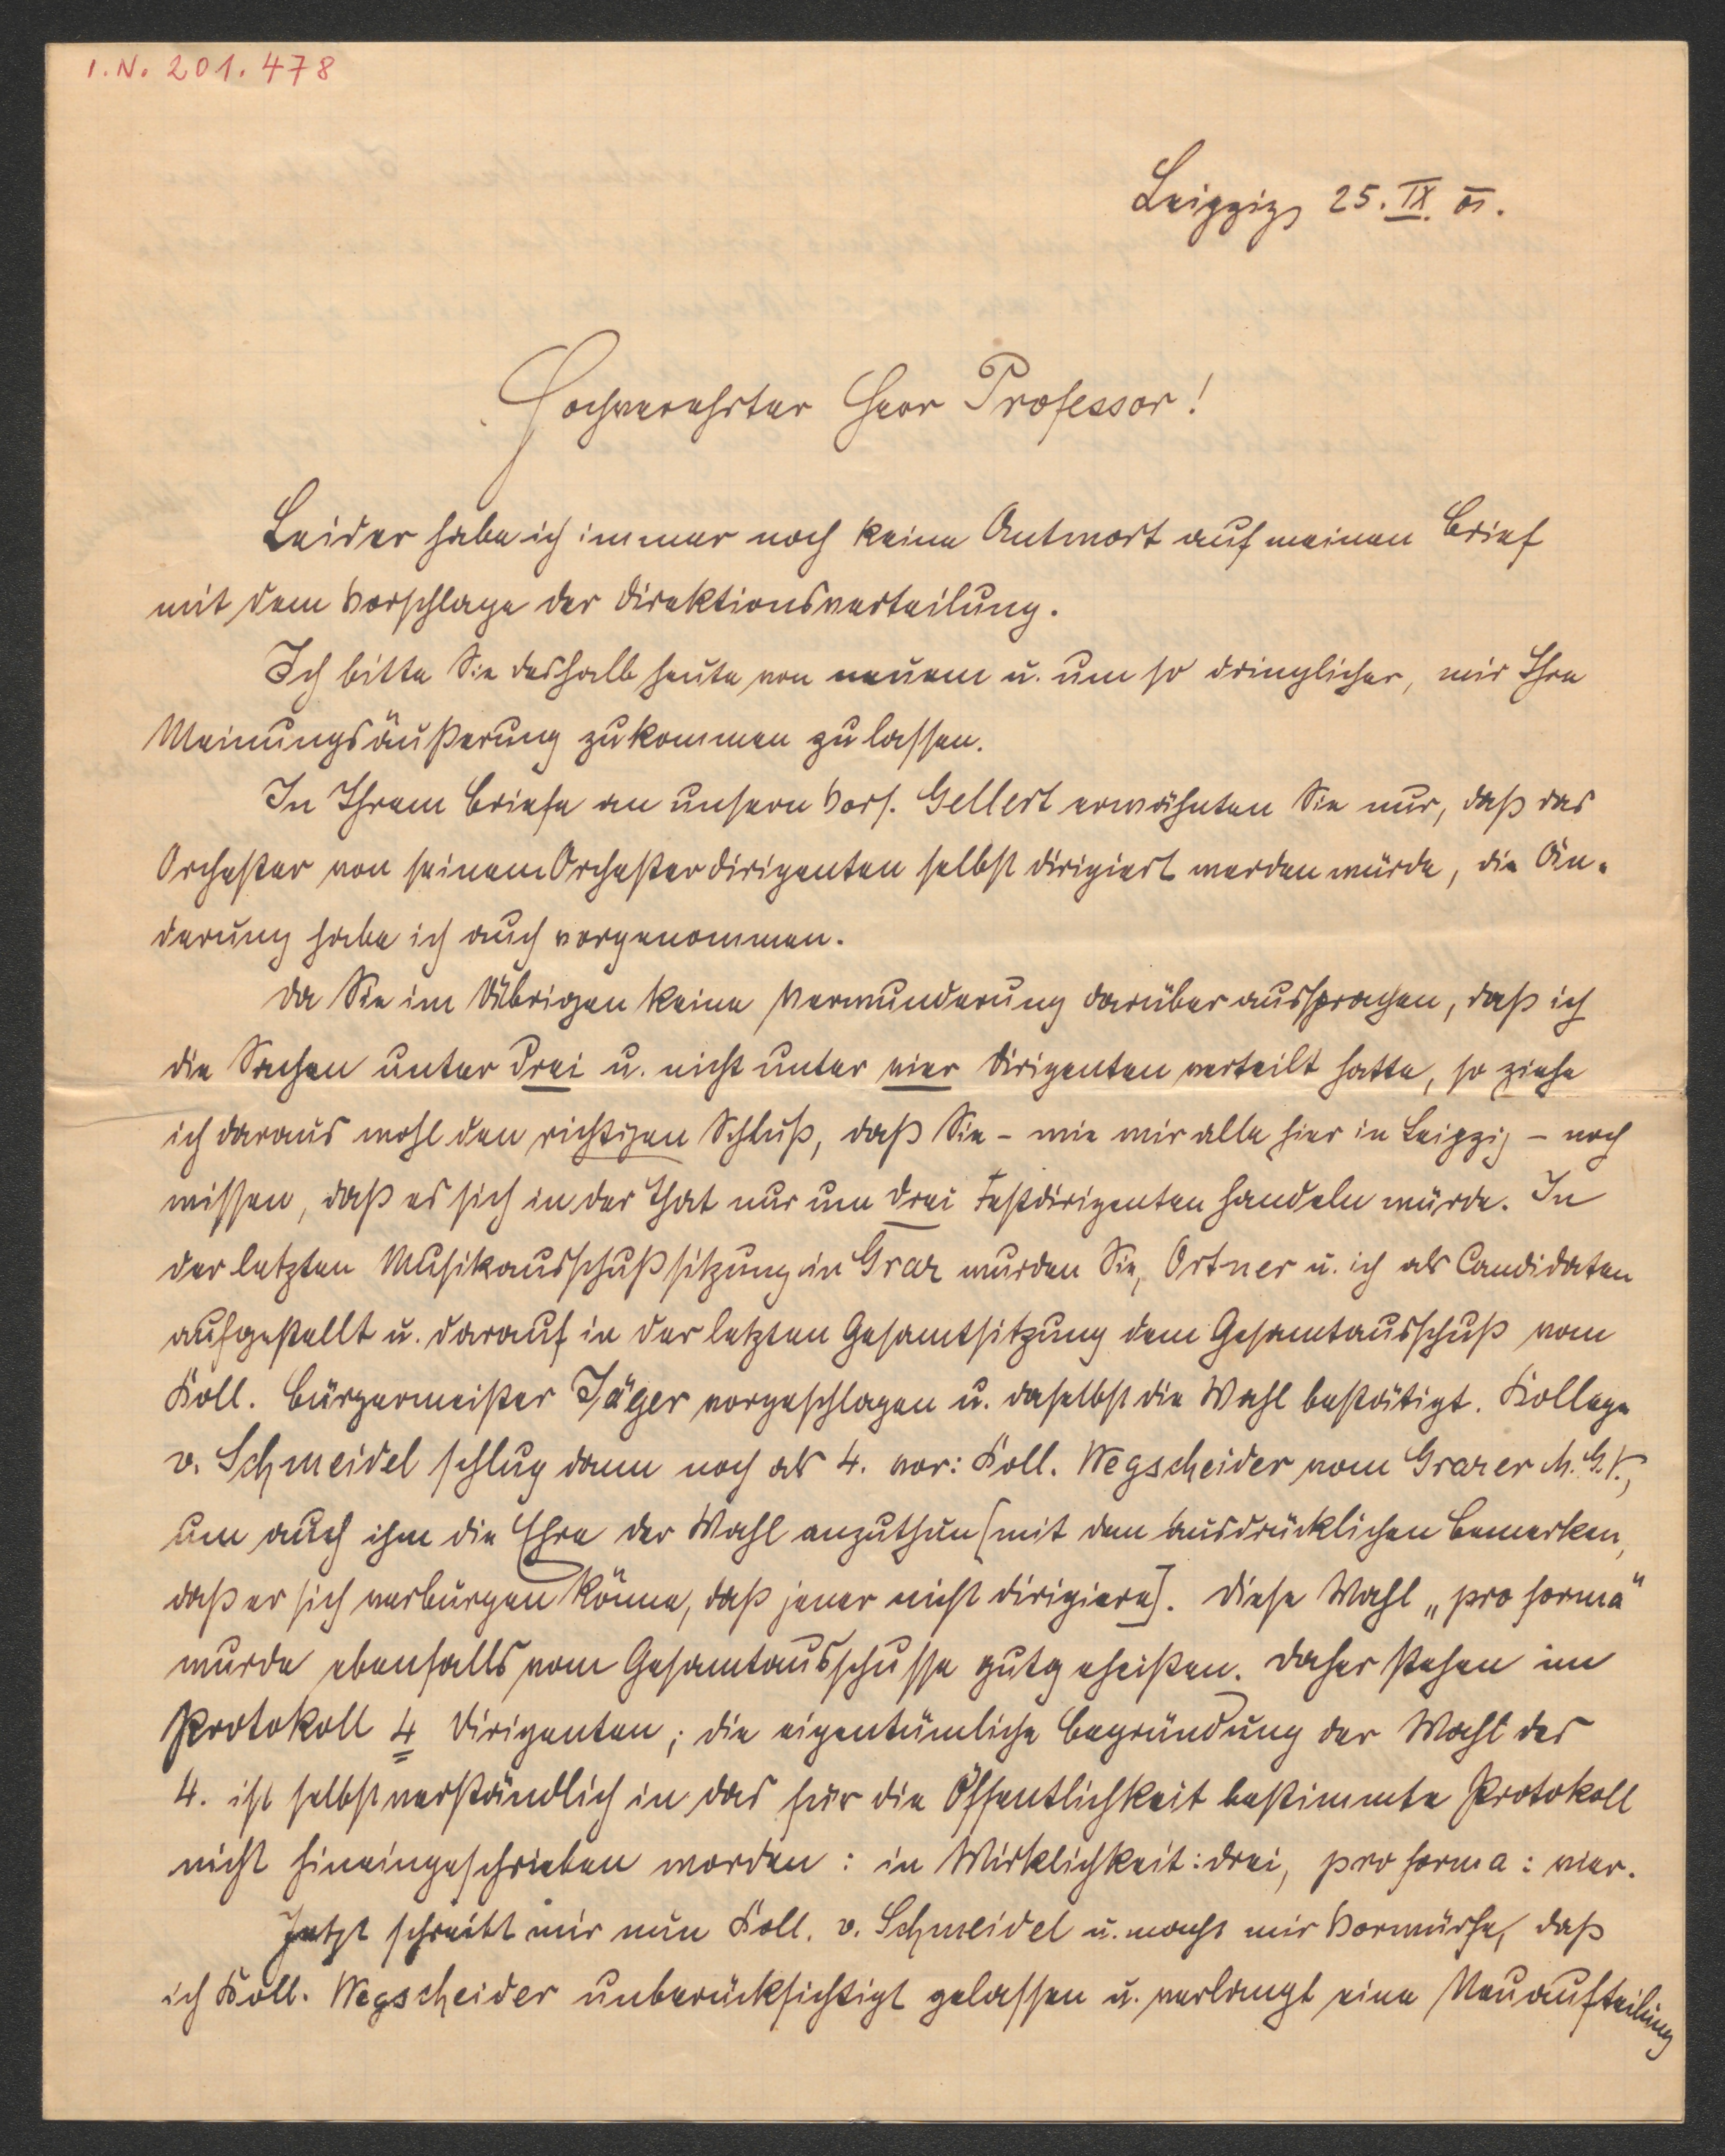 I.N. 201.478
Leipzig, 25. IX. 01.
Hochverehrter Herr Professor!
Leider habe ich immer noch keine Antwort auf meinen Brief
mit dem Vorschlage der Direktionsverteilung.
Ich bitte Sie deshalb heute von neuem u. um so dringlicher, mir Ihre
Meinungsäußerung zukommen zu lassen.
In Ihrem Briefe an unsern Vors. Gellert erwähnten Sie nur, daß das
Orchester von seinem Orchesterdirigenten selbst dirigiert werden würde, die Än-
derung habe ich auch vorgenommen.
Da Sie im Übrigen keine Verwunderung darüber aussprachen, daß ich
die Sachen unter drei u. nicht unter vier Dirigenten verteilt hatte, so ziehe
ich daraus wohl den richtigen Schluß, daß Sie - wie wir alle hier in Leipzig - noch
wissen, daß es sich in der That nur um drei Festdirigenten handeln würde. In
der letzten Musikausschußsitzung in Graz wurden Sie, Ortner u. ich als Candidaten
aufgestellt u. darauf in der letzten Gesamtsitzung dem Gesamtausschuß vom
Koll. Bürgermeister Jäger vorgeschlagen u. daselbst die Wahl bestätigt. Kollege
v. Schmeidel schlug dann noch als 4. vor: Koll. Wegscheider vom Grazer M.G.V.,
um auch ihm die Ehre der Wahl anzuthun [mit dem ausdrücklichen Bemerken,
daß er sich verbürgen könne, daß jener nicht dirigiere]. Diese Wahl „pro forma“
wurde ebenfalls vom Gesamtausschusse gutgeheißen. Daher stehen im
Protokoll 4 Dirigenten; die eigentümliche Begründung der Wahl des
4. ist selbstverständlich in das für die Öffentlichkeit bestimmte Protokoll
nicht hineingeschrieben worden: in Wirklichkeit: drei, pro forma: vier.
Jetzt schreibt mir nun Koll. v. Schmeidel u. macht mir Vorwürfe, daß
ich Koll. Wegscheider unberücksichtigt gelassen u. verlangt eine Neuaufteilung